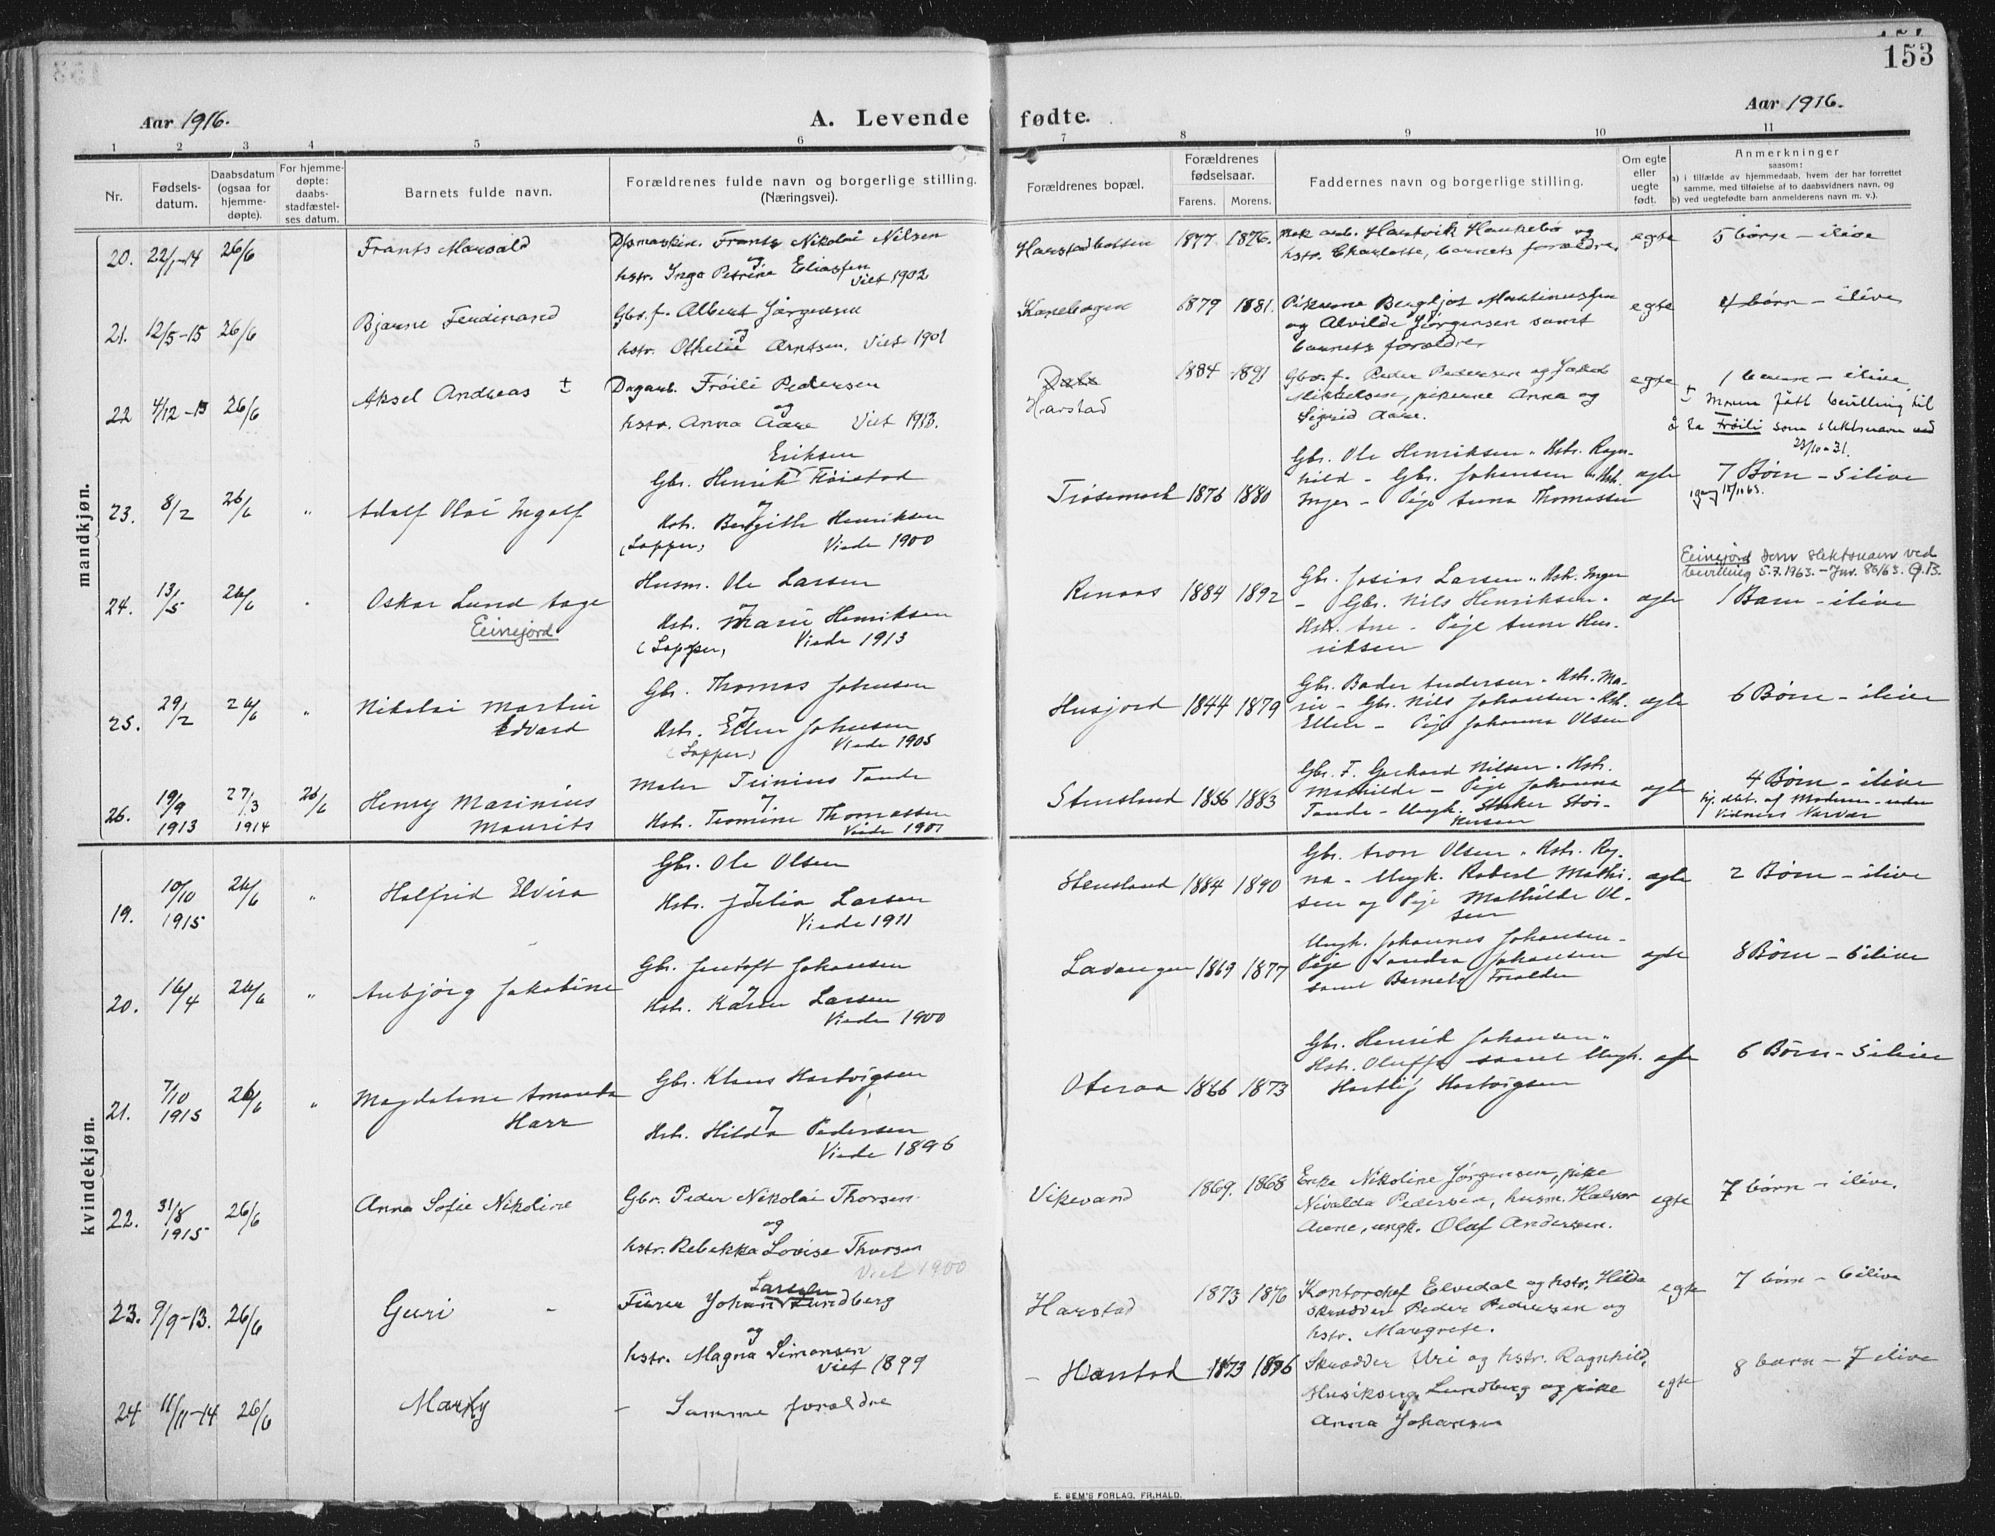 153
Aar 1916.
A. Levende fødte.
Aar 1916.
1 2 3 4 5 6 7 8 9 10 11
Nr.
Fødsels-
datum.
Daabsdatum
(ogsaa for
hjemme-
døpte).
For hjemme-
døpte:
daabs-
stadfæstel-
ses datum.
Barnets fulde navn.
Forældrenes fulde navn og borgerlige stilling.
(Næringsvei).
Forældrenes bopæl.
Forældrenes
fødselsaar.
Farens. Morens.
Faddernes navn og borgerlige stilling.
Om egte
eller
uegte
født.
Anmerkninger
saasom:
a) i tilfælde av hjemmedaab, hvem der har forrettet
samme, med tilføielse af to daabsvidners navn, og
b) ved uegtefødte barn anmelderens navn m. v.).
mandkjøn.
20. 22/1-14 26/6
Frants Marvald
Frants Nikolai Nilsen
og
hstr. Inga Petrine Eliassen
Viet 1902
Harstadbotten 1877. 1876.
Hartvik Haukebø og
hstr. Charlotte, barnets forældre.
egte
5 børn - ilive
21. 12/5-15 26/6
Bjarne Ferdinand
Gbr.f. Albert Jørgensen
og
hstr. Othelie Arntsen. Viet 1901
Kanebogen 1879 1881.
Pikerne Bergljot Martinussen
og Alvilde Jørgensen samt
barnets forældre.
egte
4 børn - ilive
22 4/12-13 26/6
Aksel Andreas ±
Dagarb. Frøili Pedersen
og
hstr. Anna Aare Viet 1913.
Harstad 1884 1891
Gbr.f. Peder Pedersen og Jakob
Mikkelsen, pikerne Anna og
Sigrid Aare.
egte
1 barn - ilive
± Moren fått bevilling til
å ta Frøili som slektsnavn ved
23/10-31.
23. 8/2 26/6 "
Adolf Olai Ingolf
Eriksen
Gbr. Henrik Høistad
Hstr. Bergith Henriksen
(Lapper) Viede 1900
Trøsemark 1876 1880
Gbr. Ole Henriksen - Hstr. Ragn-
hild - Gbr. Johansen - Hstr.
Inger - Pige Anna Thomassen
egte
7 Børn - 5 ilive
24. 13/5 26/6
Oskar Lund Aage
Eeinejord
Husm. Ole Larsen
Hstr. Marie Henriksen
(Lapper) Viede 1913
Renaas 1884 1892
Gbr. Josias Larsen - Hstr. Inger
- Gbr. Nils Henriksen -
Hstr. Ane - Pige Anne Hen-
riksen
egte
Eeinejord som slektsnavn ved
bevilling 5.7.1963. - Jnr. 85/63. G.B.
1 Barn - ilive
25. 29/2 26/6 "
Nikolai Martin
Edvard
Gbr. Thomas Johnsen
Hstr. Ellen Johnsen
(Lapper) Viede 1905
Husjord 1844 1879
Gbr. Bader Andersen - Hstr. Ma-
rie - Gbr. Nils Johansen - Hstr.
Ellen - Pige Johanna Olsen
egte
6 Børn - ilive
26. 19/9 1913 27/3 1914 26/6
Henry Marinius
Maurits
Maler Teinius Tande
Hstr. Thomine Thomassen
Viede 1901
Stensland 1886 1883
Gbr. F. Gerhard Nilsen - Hstr.
Mathilde - Pige Johanna
Tande - Ungk.
egte
4 Børn - ilive
hj. døbt af Moderen - uden
Vidners Nærvær
kvindekjøn.
19. 10/10 1915 26/6 "
Halfrid Elvira
Gbr. Ole Olsen
Hstr. Julia Larsen
Viede 1911
Stensland 1884 1890
Gbr. Aron Olsen - Hstr. Rag-
na - Ungk. Robert Mathi-
sen og Pige Mathilde Ol-
sen
egte
2 Børn - ilive
20. 16/4 26/6 "
Anbjørg Jakobine
Gbr. Jentoft Johansen
Hstr. Karen Larsen
Viede 1900
Lavangen 1869 1877
Ungk. Johannes Johansen -
Pige Sandra Johansen
samt Barnets Forældre
egte
8 Børn - 6 ilive
21. 7/10 1915 26/6 "
Magdalene Amanda
Harr
Gbr. Klaus Hartvigsen
Hstr. Hilda Pedersen
Viede 1896
Oteraa 1866 1873
Gbr. Henrik Johansen -
Hstr. Oluffa samt Ungk.
Hartvigsen
egte
6 Børn - 5 ilive
22. 31/8 1915 26/6
Anna Sofie Nikoline
Gbr. Peder Nikolai Thorsen
og
hstr. Rebekka Lovise Thorsen
Viet 1900
Vikevand 1869. 1868
Enke Nikoline Jørgensen, pike
Nivalda Pedersen, husm. Halvor
Aune, ungk. Olaf Andersen.
egte
7 børn - ilive.
23. 9/9-13. 26/6
Guri -
Larsen
Fører Johan Lundberg
og
hstr. Magna Simonsen
Viet 1899
Harstad 1873 1876
Kontorchef Elvedal og hstr. Hilda
Skrædder Peder Pedersen og
hstr. Margrete.
egte
7 børn - 6 ilive
24 11/11-14 26/6
Marky -
Samme forældre
- Harstad 1873 1876
Skrædder Uri og hstr. Ragnhild,
Musiksrg. Lundberg og pike
Anna Johansen
egte
8 barn - 7 ilive
E. SEM'S FORLAG, FR.HALD.